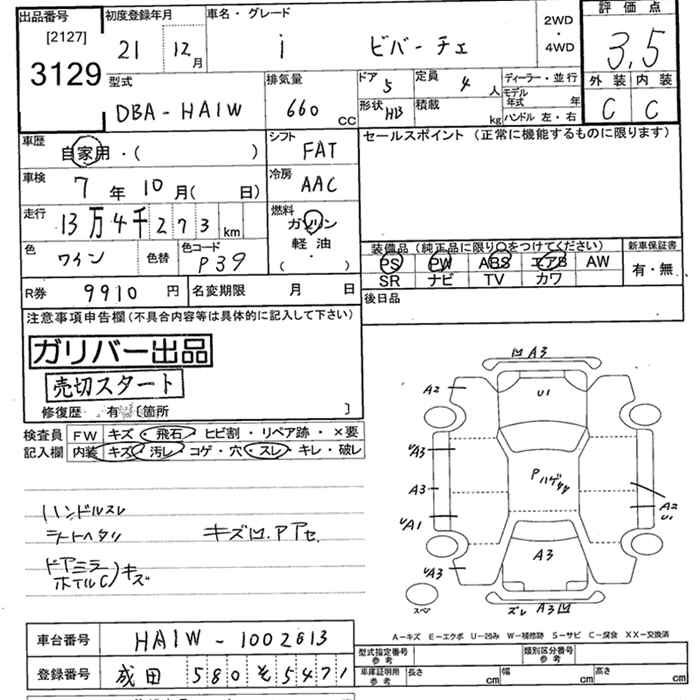 出品番号 初度登録年月 車名・グレード 2WD・4WD 評価点
[2127] 3129 21 12月 i ビバーチェ 3.5
型式 排気量 ドア 5 定員 4人 ディーラー・並行 外装 内装
DBA-HA1W 660 CC 形状 HB 積載 kg モデル年式 年 C C
ハンドル 左・右
車歴 自家用・( ) シフト FAT セールスポイント(正常に機能するものに限ります)
車検 7年10月( 日) 冷房 AAC
走行 13万4千273km 燃料 ガソリン・軽油 ( )
色 ワイン 色替 色コード P39
装備品(純正品に限り○をつけてください) 新車保証書
PS PW ABS エアB AW 有・無
SR ナビ TV カワ
R券 9910円 名変期限 月 日 後日品
注意事項申告欄(不具合内容等は具体的に記入して下さい)
ガリバー出品
売切スタート
修復歴・有 [箇所 ]
検査員 FW キズ・飛石・ヒビ割・リペア跡・×要
記入欄 内装 キズ・汚レ・コゲ・穴・スレ・キレ・破レ
ハンドルスレ
シートヘタリ キズ凹.Pアセ.
ドアミラー
ホイルC)キズ
凹 A3
A2 U1
A3
P ハゲ
A3 A2
U1
A1
A3
A3
スペ ズレ A3凹
A-キズ E-エクボ U-凹み W-補修跡 S-サビ C-腐食 XX-交換済
車台番号 HA1W-1002613
登録番号 成田 580 そ 5471
型式指定番号 参考 類別区分番号 参考
車庫証明用 参考 長さ cm 幅 cm 高さ cm